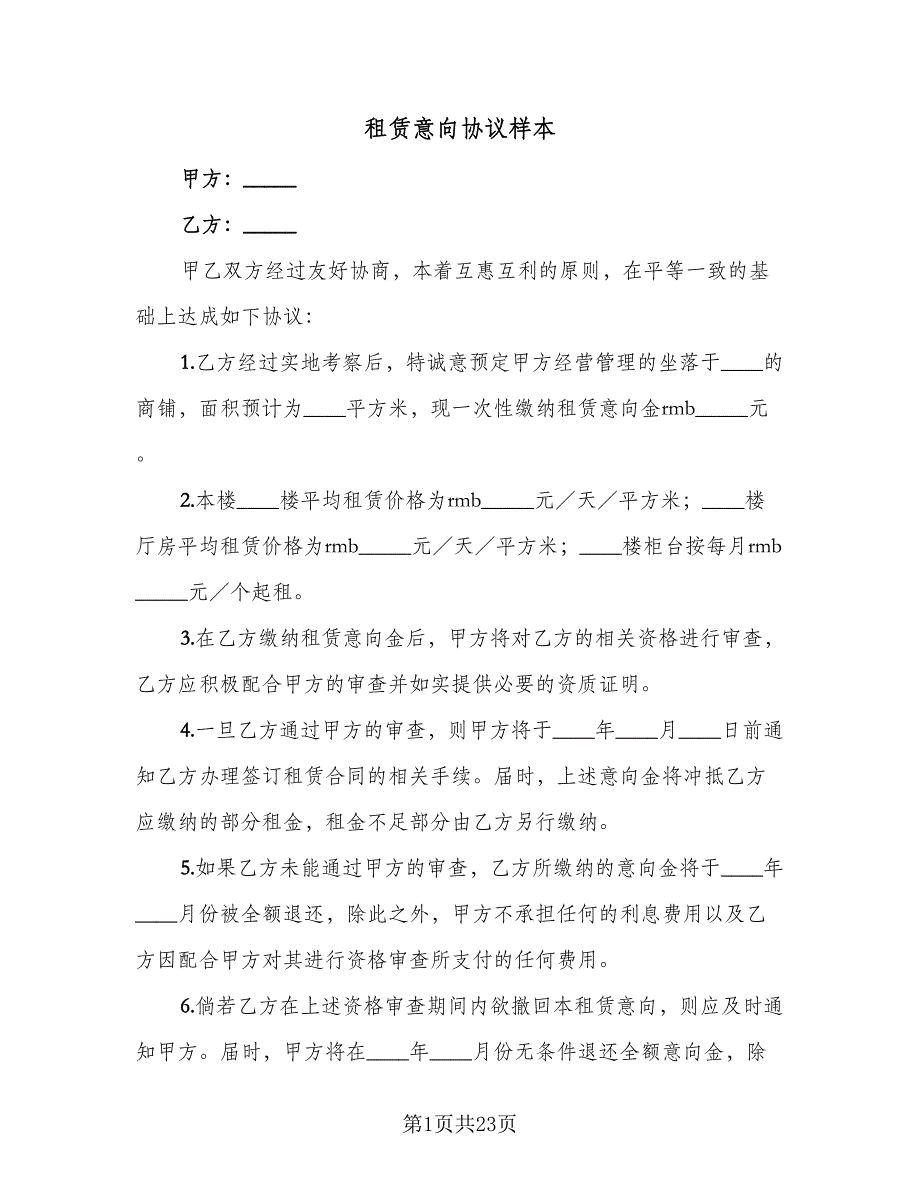 租赁意向协议样本
甲方：_____
乙方：_____
甲乙双方经过友好协商，本着互惠互利的原则，在平等一致的基
础上达成如下协议：
1.乙方经过实地考察后，特诚意预定甲方经营管理的坐落于____的
商铺，面积预计为____平方米，现一次性缴纳租赁意向金rmb_____元
。
2.本楼____楼平均租赁价格为rmb_____元／天／平方米；____楼
厅房平均租赁价格为rmb_____元／天／平方米；____楼柜台按每月rmb
_____元／个起租。
3.在乙方缴纳租赁意向金后，甲方将对乙方的相关资格进行审查，
乙方应积极配合甲方的审查并如实提供必要的资质证明。
4.一旦乙方通过甲方的审查，则甲方将于____年____月____日前通
知乙方办理签订租赁合同的相关手续。届时，上述意向金将冲抵乙方
应缴纳的部分租金，租金不足部分由乙方另行缴纳。
5.如果乙方未能通过甲方的审查，乙方所缴纳的意向金将于____年
____月份被全额退还，除此之外，甲方不承担任何的利息费用以及乙
方因配合甲方对其进行资格审查所支付的任何费用。
6.倘若乙方在上述资格审查期间内欲撤回本租赁意向，则应及时通
知甲方。届时，甲方将在____年____月份无条件退还全额意向金，除
第1页共23页